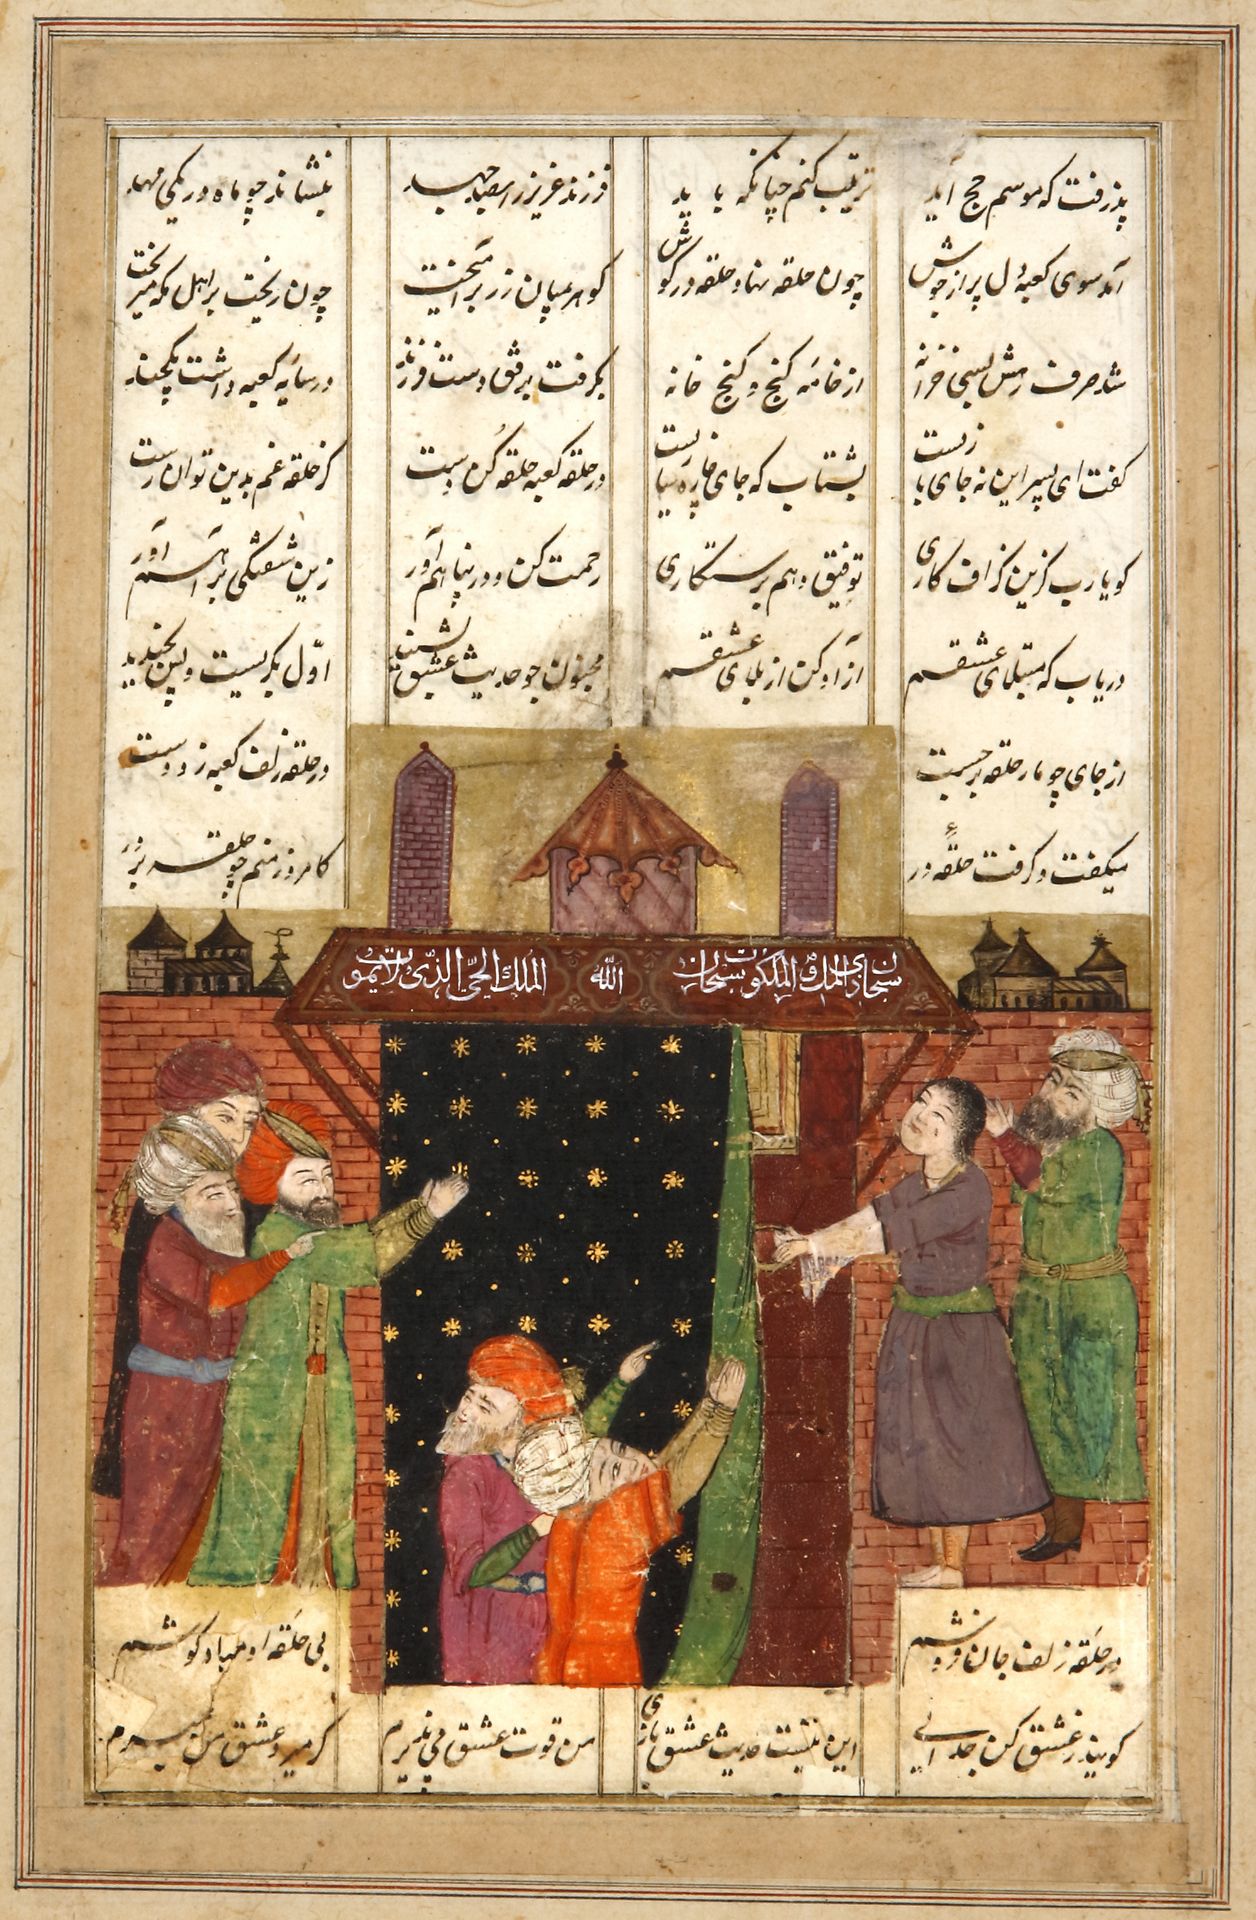 پذرفت که موسم حج آید ترتیب کنم چنانکه باید فرزند عزیز را بصد جهد بنشاند چو ماه در یکی مهد
آمد سوی کعبه دل پر از جوش چون حلقه نهاد حلقه در کوش کوهر بمیان زر برآمیخت چون ریخت بر اهل مکه میریخت
شد صرف رهش بسی خزانه از خانه کنج و کنج خانه بکرفت برفق دست فرزند در سایه کعبه داشت یکچند
کفت ای پسر این نه جای بازیست بشتاب که جای چاره سازیست در حلقه کعبه حلقه کن دست کز حلقه غم بدین توان رست
کو یارب کزین کزاف کاری توفیق دهم برستکاری رحمت کن و در پناهم آور زین شیفتکی براهم آور
دریاب که مبتلای عشقم آزاد کن از بلای عشقم مجنون چو حدیث عشق بشنید اول بکریست و پس بخندید
از جای چو مار حلقه برجست در حلقه زلف کعبه زد دست
میکفت و کرفت حلقهٔ در کامروز منم چو حلقه بر در
سبحان ذی الملک الملکوت سبحان الله الملک الحی الذی لایموت
در حلقه زلف جان فروشم بی حلقه او مباد کوشم
کویند ز عشق کن جدایی این نیست حدیث عشق بازی من قوت عشق می پذیرم کر میرد عشق من بمیرم